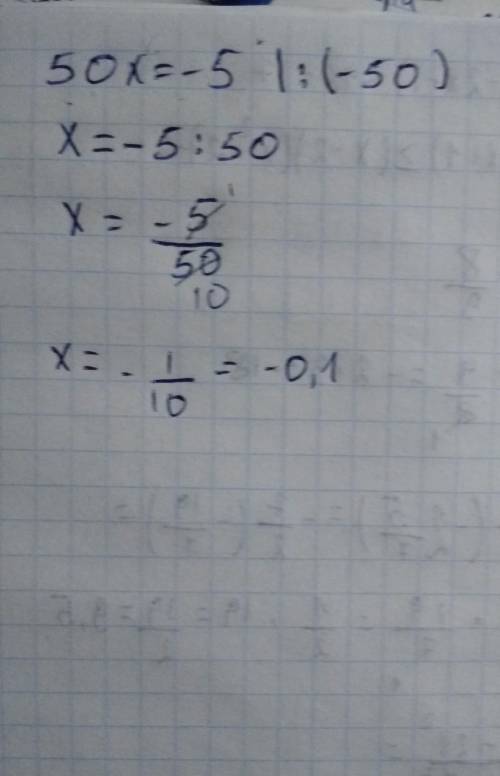 50x=-5 |:(-50)
x=-5:50
x = -5/50
1
10
x= -1/10 = -0,1